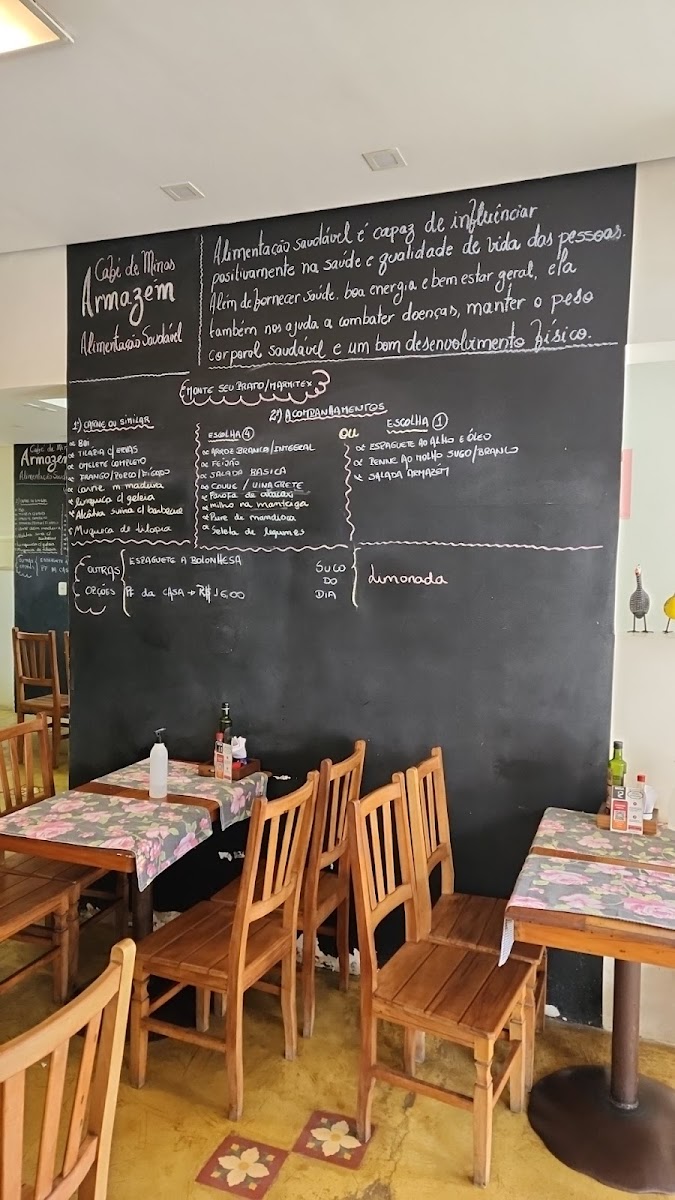 Café de Minas
Armazém
Alimentação Saudável
Alimentação saudável é capaz de influênciar
positivamente na saúde e qualidade de vida das pessoas.
Além de fornecer saúde, boa energia e bem estar geral, ela
também nos ajuda a combater doenças, manter o peso
corporal saudável e um bom desenvolvimento físico.
MONTE SEU PRATO/MARMITEX
1º) CARNE OU SIMILAR
BOI
TILAPIA C/ ERVAS
OMELETE COMPLETO
FRANGO/PORCO/FÍGADO
Carne m madeira
Linguiça c/ geleia
Alcatra suina c/ barbecue
Muqueca de tilapia
2º) ACOMPANHAMENTOS
ESCOLHA 4
ARROZ BRANCO/INTEGRAL
FEIJÃO
SALADA BÁSICA
COUVE / VINAGRETE
Farofa de
milho na manteiga
Pure de mandioca
Seleta de legumes
OU
ESCOLHA 1
ESPAGUETE AO ALHO E ÓLEO
PENNE AO MOLHO SUGO/BRANCO
SALADA ARMAZÉM
OUTRAS
OPÇÕES
ESPAGUETE A BOLONHESA
PF da CASA → R$ 16,00
SUCO
DO
DIA
Limonada
Café de Min
Armazém
Alimentação